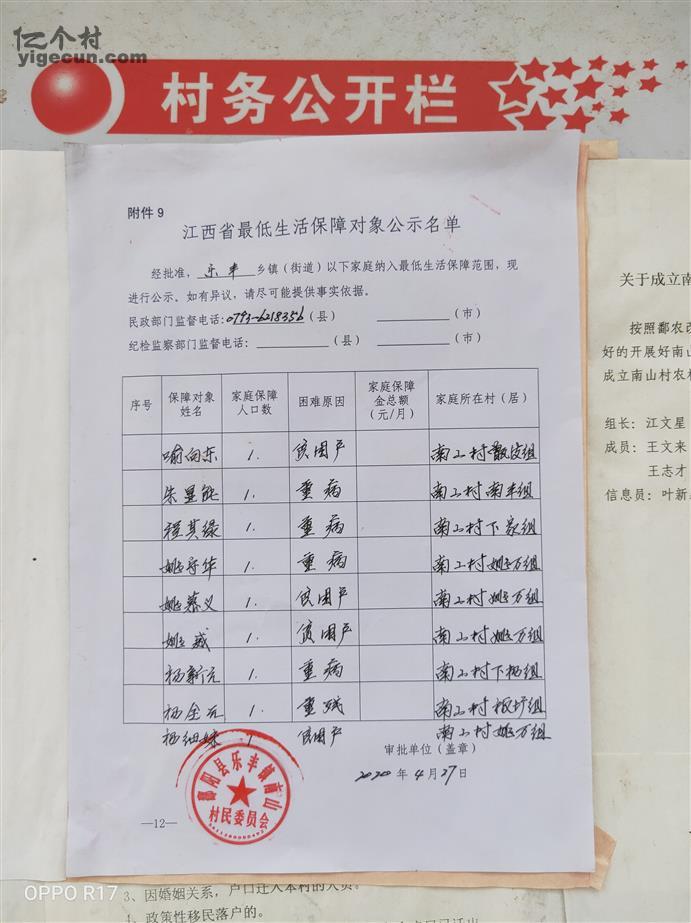 亿个村
yigecun.com
村务公开栏
附件9
江西省最低生活保障对象公示名单
经批准，乐丰乡镇（街道）以下家庭纳入最低生活保障范围，现
进行公示。如有异议，请尽可能提供事实依据。
民政部门监督电话：0793-6218356（县）（市）
纪检监察部门监督电话：（县）（市）
序号 保障对象姓名 家庭保障人口数 困难原因 家庭保障金总额（元/月） 家庭所在村（居）
喻向东 1. 贫困户 南山村 组
朱显能 1. 重病 南山村南丰组
程其绿 1. 重病 南山村下家组
姚守华 1. 重病 南山村姚万组
姚慕义 1. 贫困户 南山村姚万组
姚威 1. 贫困户 南山村姚万组
杨新元 1. 重病 南山村下杨组
杨全元 1. 重残 南山村 组
杨细妹 1 贫困户 南山村姚万组
审批单位（盖章）
2020年4月27日
鄱阳县乐丰镇南山
村民委员会
—12—
关于成立南
按照鄱农改
好的开展好南山
成立南山村农村
组长：江文星
成员：王文来
王志才
信息员：叶新
3、因婚姻关系，户口迁入本村的人员。
4、政策性移民落户的。
OPPO R17